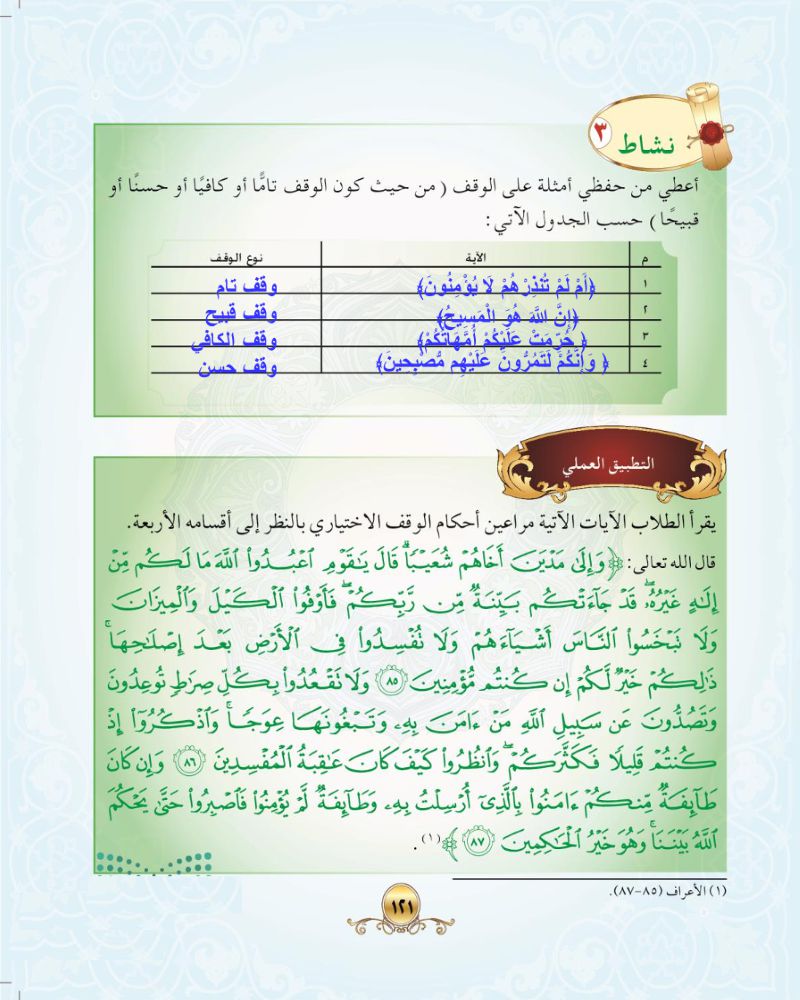 نشاط ٣
أعطي من حفظي أمثلة على الوقف ( من حيث كون الوقف تامًّا أو كافيًا أو حسنًا أو
قبيحًا ) حسب الجدول الآتي :
م الآية نوع الوقف
١ ﴿أَمْ لَمْ تُنْذِرْهُمْ لَا يُؤْمِنُونَ﴾ وقف تام
٢ ﴿إِنَّ اللَّهَ هُوَ الْمَسِيحُ﴾ وقف قبيح
٣ ﴿ حُرِّمَتْ عَلَيْكُمْ أُمَّهَاتُكُمْ﴾ وقف الكافي
٤ ﴿ وَإِنَّكُمْ لَتَمُرُّونَ عَلَيْهِم مُّصْبِحِينَ﴾ وقف حسن
التطبيق العملي
يقرأ الطلاب الآيات الآتية مراعين أحكام الوقف الاختياري بالنظر إلى أقسامه الأربعة.
قال الله تعالى: ﴿وَإِلَىٰ مَدۡيَنَ أَخَاهُمۡ شُعَيۡبٗاۚ قَالَ يَٰقَوۡمِ ٱعۡبُدُواْ ٱللَّهَ مَا لَكُم مِّنۡ
إِلَٰهٍ غَيۡرُهُۥۖ قَدۡ جَآءَتۡكُم بَيِّنَةٞ مِّن رَّبِّكُمۡۖ فَأَوۡفُواْ ٱلۡكَيۡلَ وَٱلۡمِيزَانَ
وَلَا تَبۡخَسُواْ ٱلنَّاسَ أَشۡيَآءَهُمۡ وَلَا تُفۡسِدُواْ فِي ٱلۡأَرۡضِ بَعۡدَ إِصۡلَٰحِهَاۚ
ذَٰلِكُمۡ خَيۡرٞ لَّكُمۡ إِن كُنتُم مُّؤۡمِنِينَ ٨٥ وَلَا تَقۡعُدُواْ بِكُلِّ صِرَٰطٖ تُوعِدُونَ
وَتَصُدُّونَ عَن سَبِيلِ ٱللَّهِ مَنۡ ءَامَنَ بِهِۦ وَتَبۡغُونَهَا عِوَجٗاۚ وَٱذۡكُرُوٓاْ إِذۡ
كُنتُمۡ قَلِيلٗا فَكَثَّرَكُمۡۖ وَٱنظُرُواْ كَيۡفَ كَانَ عَٰقِبَةُ ٱلۡمُفۡسِدِينَ ٨٦ وَإِن كَانَ
طَآئِفَةٞ مِّنكُمۡ ءَامَنُواْ بِٱلَّذِيٓ أُرۡسِلۡتُ بِهِۦ وَطَآئِفَةٞ لَّمۡ يُؤۡمِنُواْ فَٱصۡبِرُواْ حَتَّىٰ يَحۡكُمَ
ٱللَّهُ بَيۡنَنَاۚ وَهُوَ خَيۡرُ ٱلۡحَٰكِمِينَ ٨٧﴾ (١) .
(١) الأعراف (٨٥-٨٧).
١٢١